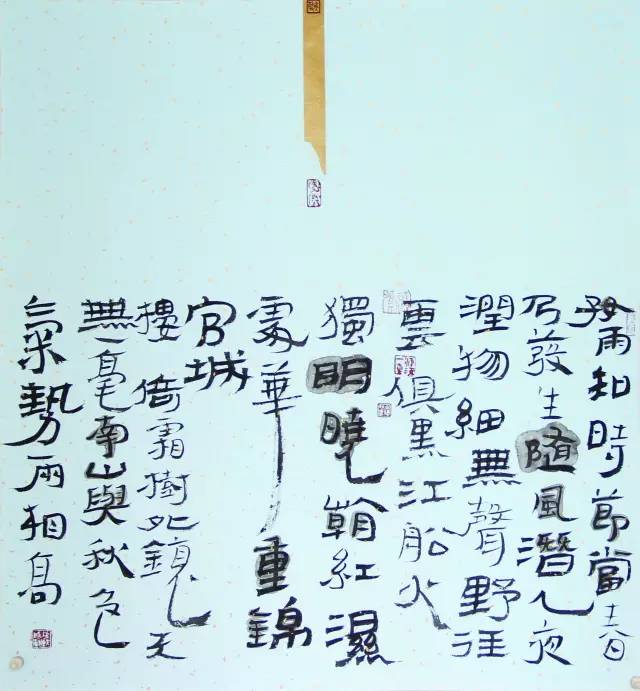 好雨知時節當春
乃發生隨風潛入夜
潤物細無聲野徑
雲俱黑江船火
獨明曉看紅濕
處華重錦
官城
樓倚霜樹外鏡天
無一毫南山與秋色
氣勢兩相高